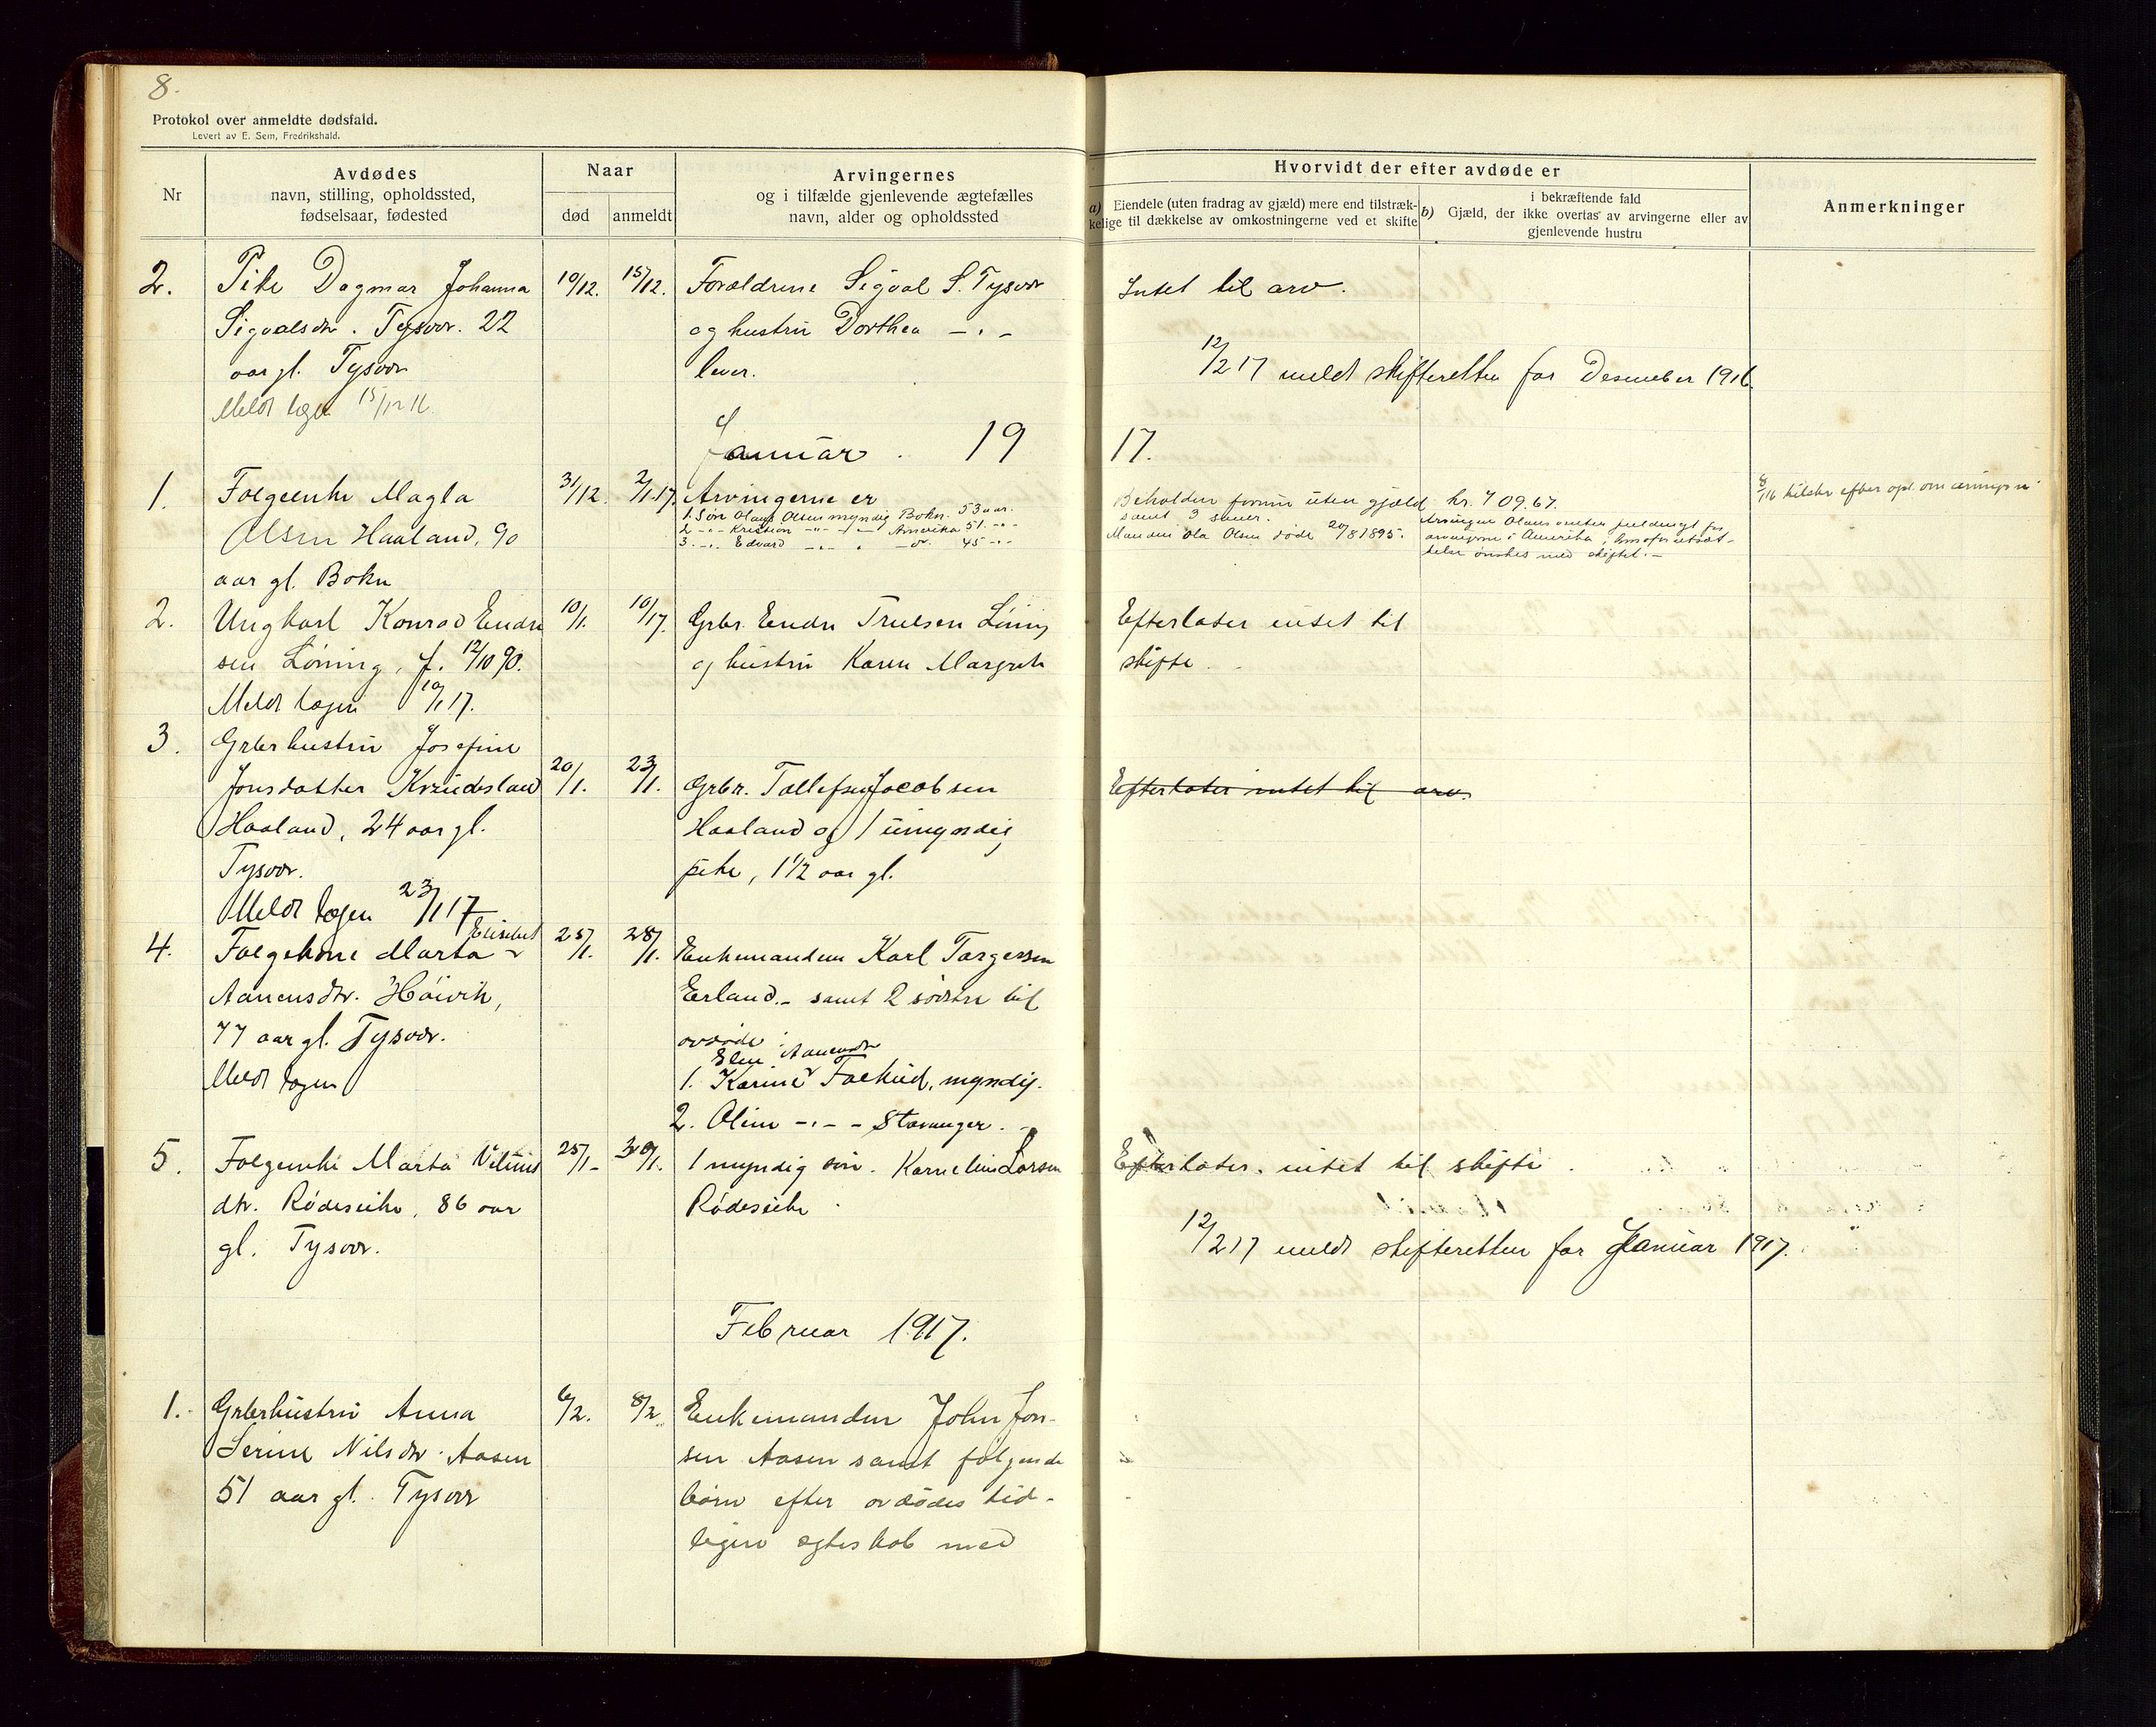 8.
Protokol over anmeldte dødsfald.
Levert av E. Sem, Fredrikshald.
Nr
Avdødes
navn, stilling, opholdssted,
fødselsaar, fødested
Naar
død
anmeldt
Arvingernes
og i tilfælde gjenlevende ægtefælles
navn, alder og opholdssted
Hvorvidt der efter avdøde er
a) Eiendele (uten fradrag av gjæld) mere end tilstræk-
kelige til dækkelse av omkostningerne ved et skifte
b) i bekræftende fald
Gjæld, der ikke overtas av arvingerne eller av
gjenlevende hustru
Anmerkninger
2. Pike Dagmar Johanna 10/12. 15/12. Forældrene Sigval S. Tysvær Intet til arv.
Sigvalsdtr. Tysvær. 22 og hustru Dorthea -"-
aar gl. Tysvær lever. 12/2 17 meldt skifteretten for Desember 1916
Meldt lægen 15/12 16.
Januar. 19 17.
1. Folgeenke Magla 31/12. 2/1.17. Arvingerne er
1. Søn Olaus Olsen myndig Bokn. 53 aar.
2. -"- Kristian -"- -"- Amerika 51 -"-
3. -"- Edvard -"- -"- 45 -"-
Beholden formue uten gjæld kr. 709.67.
samt 3 sauer.
Manden Ola Olsen døde 20/8 1895.
Olsen Haaland, 90
aar gl. Bokn
2. Ungkarl Konrad Endre 10/1. 10/17. Grbr. Endre Truelsen Løning Efterlater intet til
sen Løning, f. 12/10 90. og hustru Karen Margrete skifte.
Meldt lægen 10/1 17.
3. Grbrhustru Josefine
Jonsdatter Kvindesland 20/1. 23/1. Grbr. Tollefsen Jacobsen Efterlater intet til arv.
Haaland, 24 aar gl. Haaland og 1 umyndig
Tysvær. pike, 1 1/2 aar gl.
Meldt lægen 23/1 17
Elisabet
4. Folgekone Marta 25/1. 28/1. Enkemanden Karl Torgersen
Aanensdtr. Høivik, Erland. - samt 2 søstre til
77 aar gl. Tysvær. avdøde:
Meldt lægen
Elen Aanensdtr
1. Karine Falkeid, myndig.
2. Oline -"- - Stavanger.
5. Folgeenke Marta 25/1- 30/1. 1 myndig søn. Kornelius Larsen Efterlater intet til skifte.
dtr. Rødeseike, 86 aar Rødeseike
gl. Tysvær. 12/2 17 meldt skifteretten for Januar 1917.
Februar 1917.
1. Grbrhustru Anna 6/2. 8/2 Enkemanden John Jon-
Serine Nilsdtr. Aasen sen Aasen samt følgende
51 aar gl. Tysvær børn efter avdødes tid-
ligere egteskab med